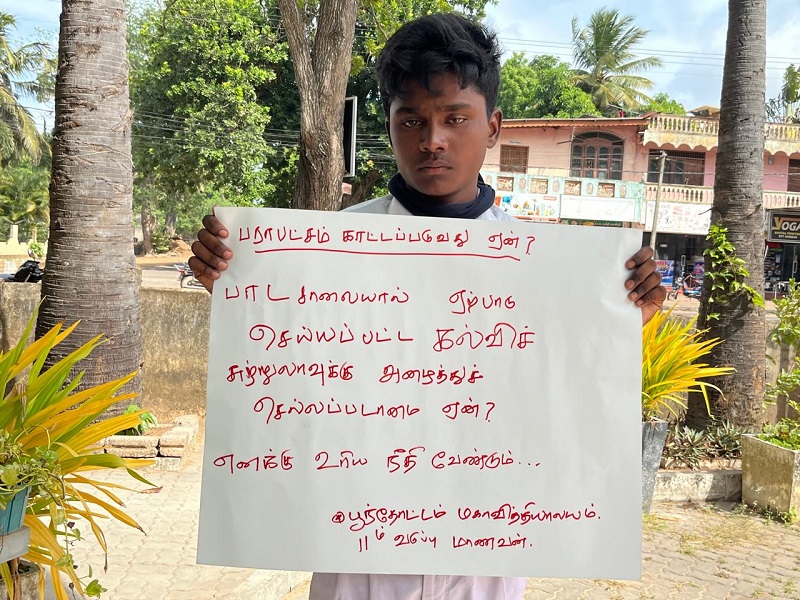 பராபட்சம் காட்டப்படுவது ஏன்?
பாடசாலையால் ஏற்பாடு
செய்யப்பட்ட கல்விச்
சுற்றுலாவுக்கு அழைத்துச்
செல்லப்படாமை ஏன்?
எனக்கு உரிய நீதி வேண்டும்...
@பூந்தோட்டம் மகாவித்தியாலயம்.
11ம் வகுப்பு மாணவன்.
YOGA